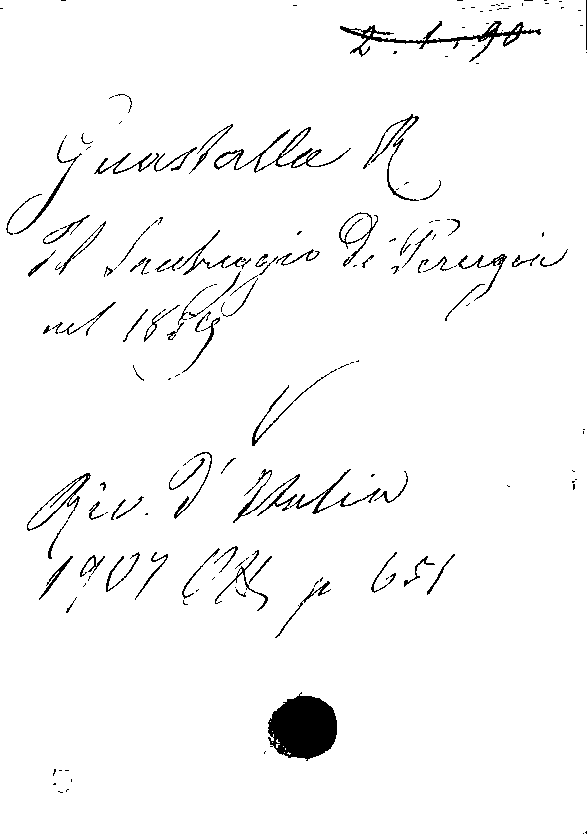 2.1.90
Guastalla R
Il Saccheggio di Perugia
nel 1859
V
Riv. d'Italia
1907 p 651